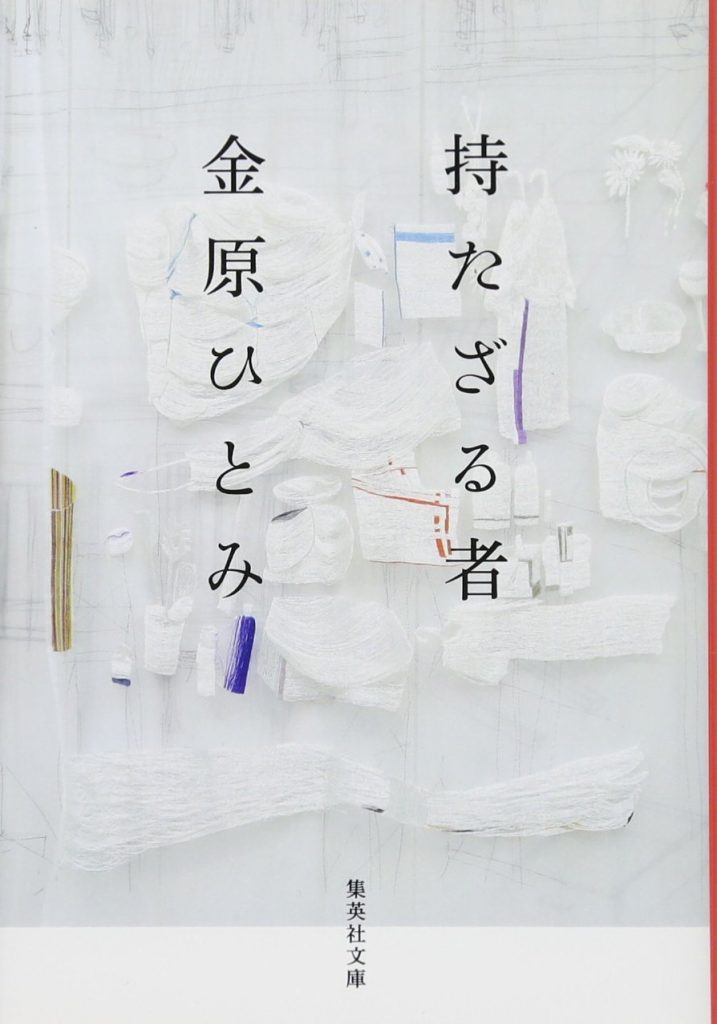 持たざる者
金原ひとみ
集英社文庫